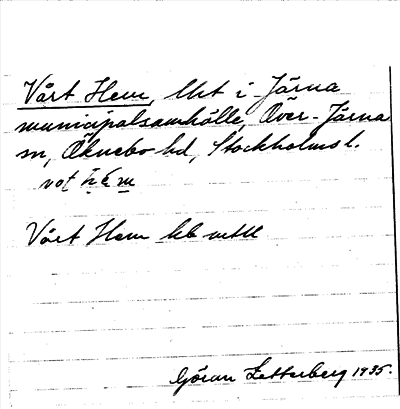 Vårt Hem, lht i Järna
municipalsamhälle, Över-Järna
sn, Öknebo hd, Stockholms l.
vo̩t hém
Vårt Hem hb
Göran Zetterberg 1935.